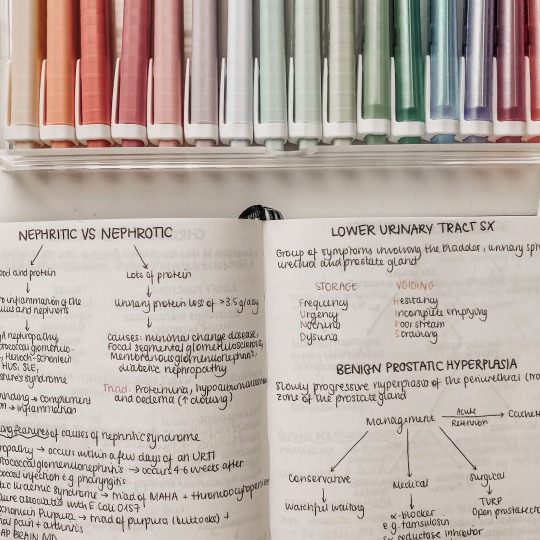 NEPHRITIC VS NEPHROTIC
and protein
Lots of protein
inflammation of the
and nephrons
Urinary protein loss of >3.5g/day
nephropathy
Causes: minimal change disease,
Focal segmental glomerulosclerosis,
Henoch-Schonlein
Membranous glomerulonephritis,
HUS, SLE,
diabetic nephropathy
syndrome
Triad: Proteinuria, hypoalbuminaemia
and oedema (↑ clotting)
→ complement
→ inflammation
features of causes of nephritic syndrome
→ occurs within a few days of an URTI
glomerulonephritis → occurs 4-6 weeks after
infection e.g pharyngitis
uraemic syndrome → triad of MAHA + thrombocytopenia
associated with E.Coli 0157
Purpura → triad of purpura (buttocks) +
pain + arthritis
LOWER URINARY TRACT SX
Group of symptoms involving the bladder, urinary sph
urethra and prostate gland
STORAGE
Frequency
Urgency
Nocturia
Dysuria
VOIDING
Hesitancy
Incomplete emptying
Poor stream
Straining
BENIGN PROSTATIC HYPERPLASIA
Slowly progressive hyperplasia of the periurethral (tra
zone of the prostate gland
Management
Acute
Retention
→ Cathete
Conservative
Medical
Surgical
Watchful waiting
α-blocker
e.g. tamsulosin
reductase inhibitor
TURP
Open prostatect